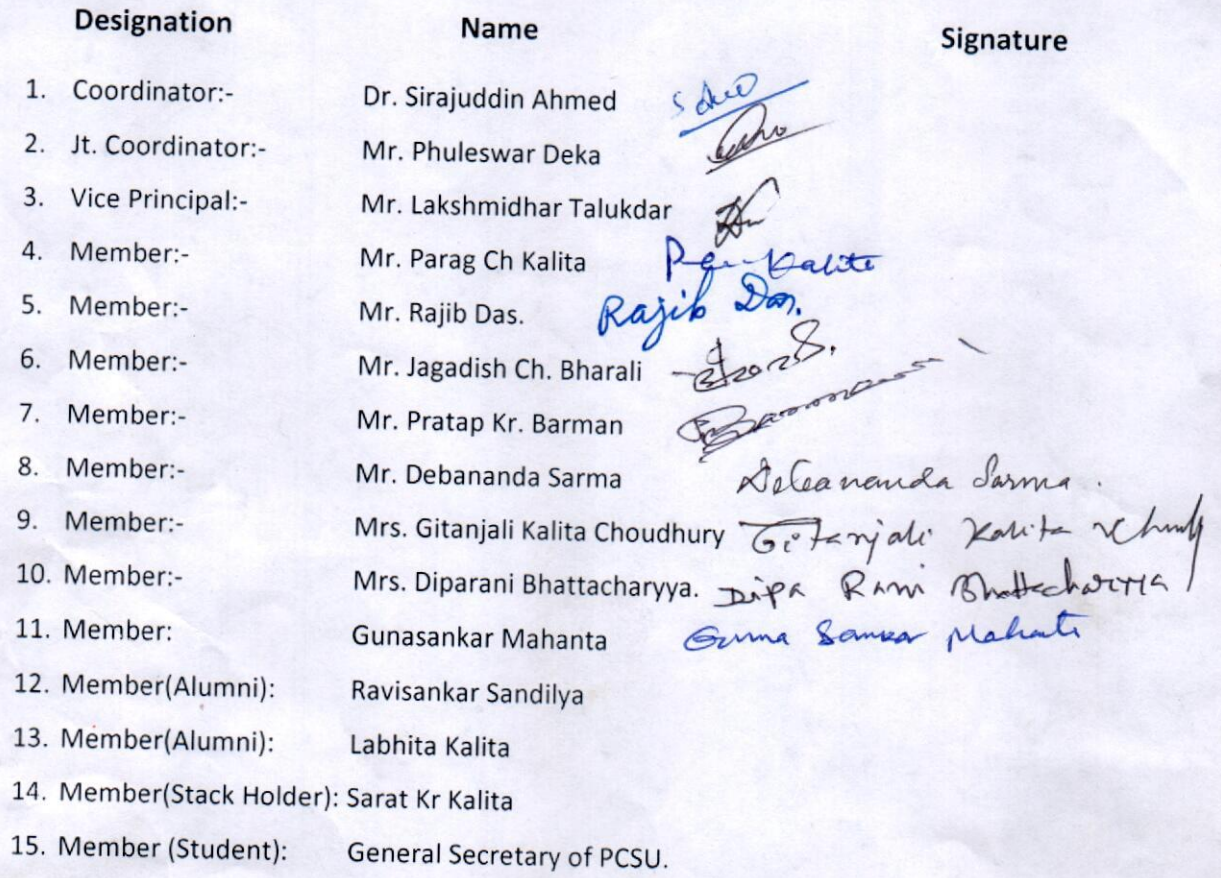 Designation Name Signature
1. Coordinator:- Dr. Sirajuddin Ahmed
2. Jt. Coordinator:- Mr. Phuleswar Deka
3. Vice Principal:- Mr. Lakshmidhar Talukdar
4. Member:- Mr. Parag Ch Kalita Kalita
5. Member:- Mr. Rajib Das. Rajib Das.
6. Member:- Mr. Jagadish Ch. Bharali
7. Member:- Mr. Pratap Kr. Barman Barman
8. Member:- Mr. Debananda Sarma Debananda Sarma.
9. Member:- Mrs. Gitanjali Kalita Choudhury Gitanjali Kalita
10. Member:- Mrs. Diparani Bhattacharyya. Dipa Rani Bhattacharyya
11. Member: Gunasankar Mahanta Guna Sankar Mahanta
12. Member(Alumni): Ravisankar Sandilya
13. Member(Alumni): Labhita Kalita
14. Member(Stack Holder): Sarat Kr Kalita
15. Member (Student): General Secretary of PCSU.